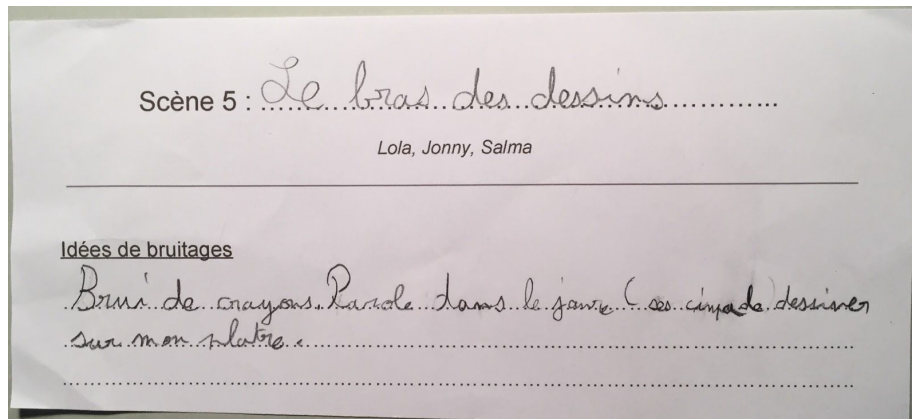 Scène 5 : Le bras des dessins
Lola, Jonny, Salma
Idées de bruitages
Brui de crayons. Parole dans le janre ( ses cinpade) dessiner
sur mon platre.